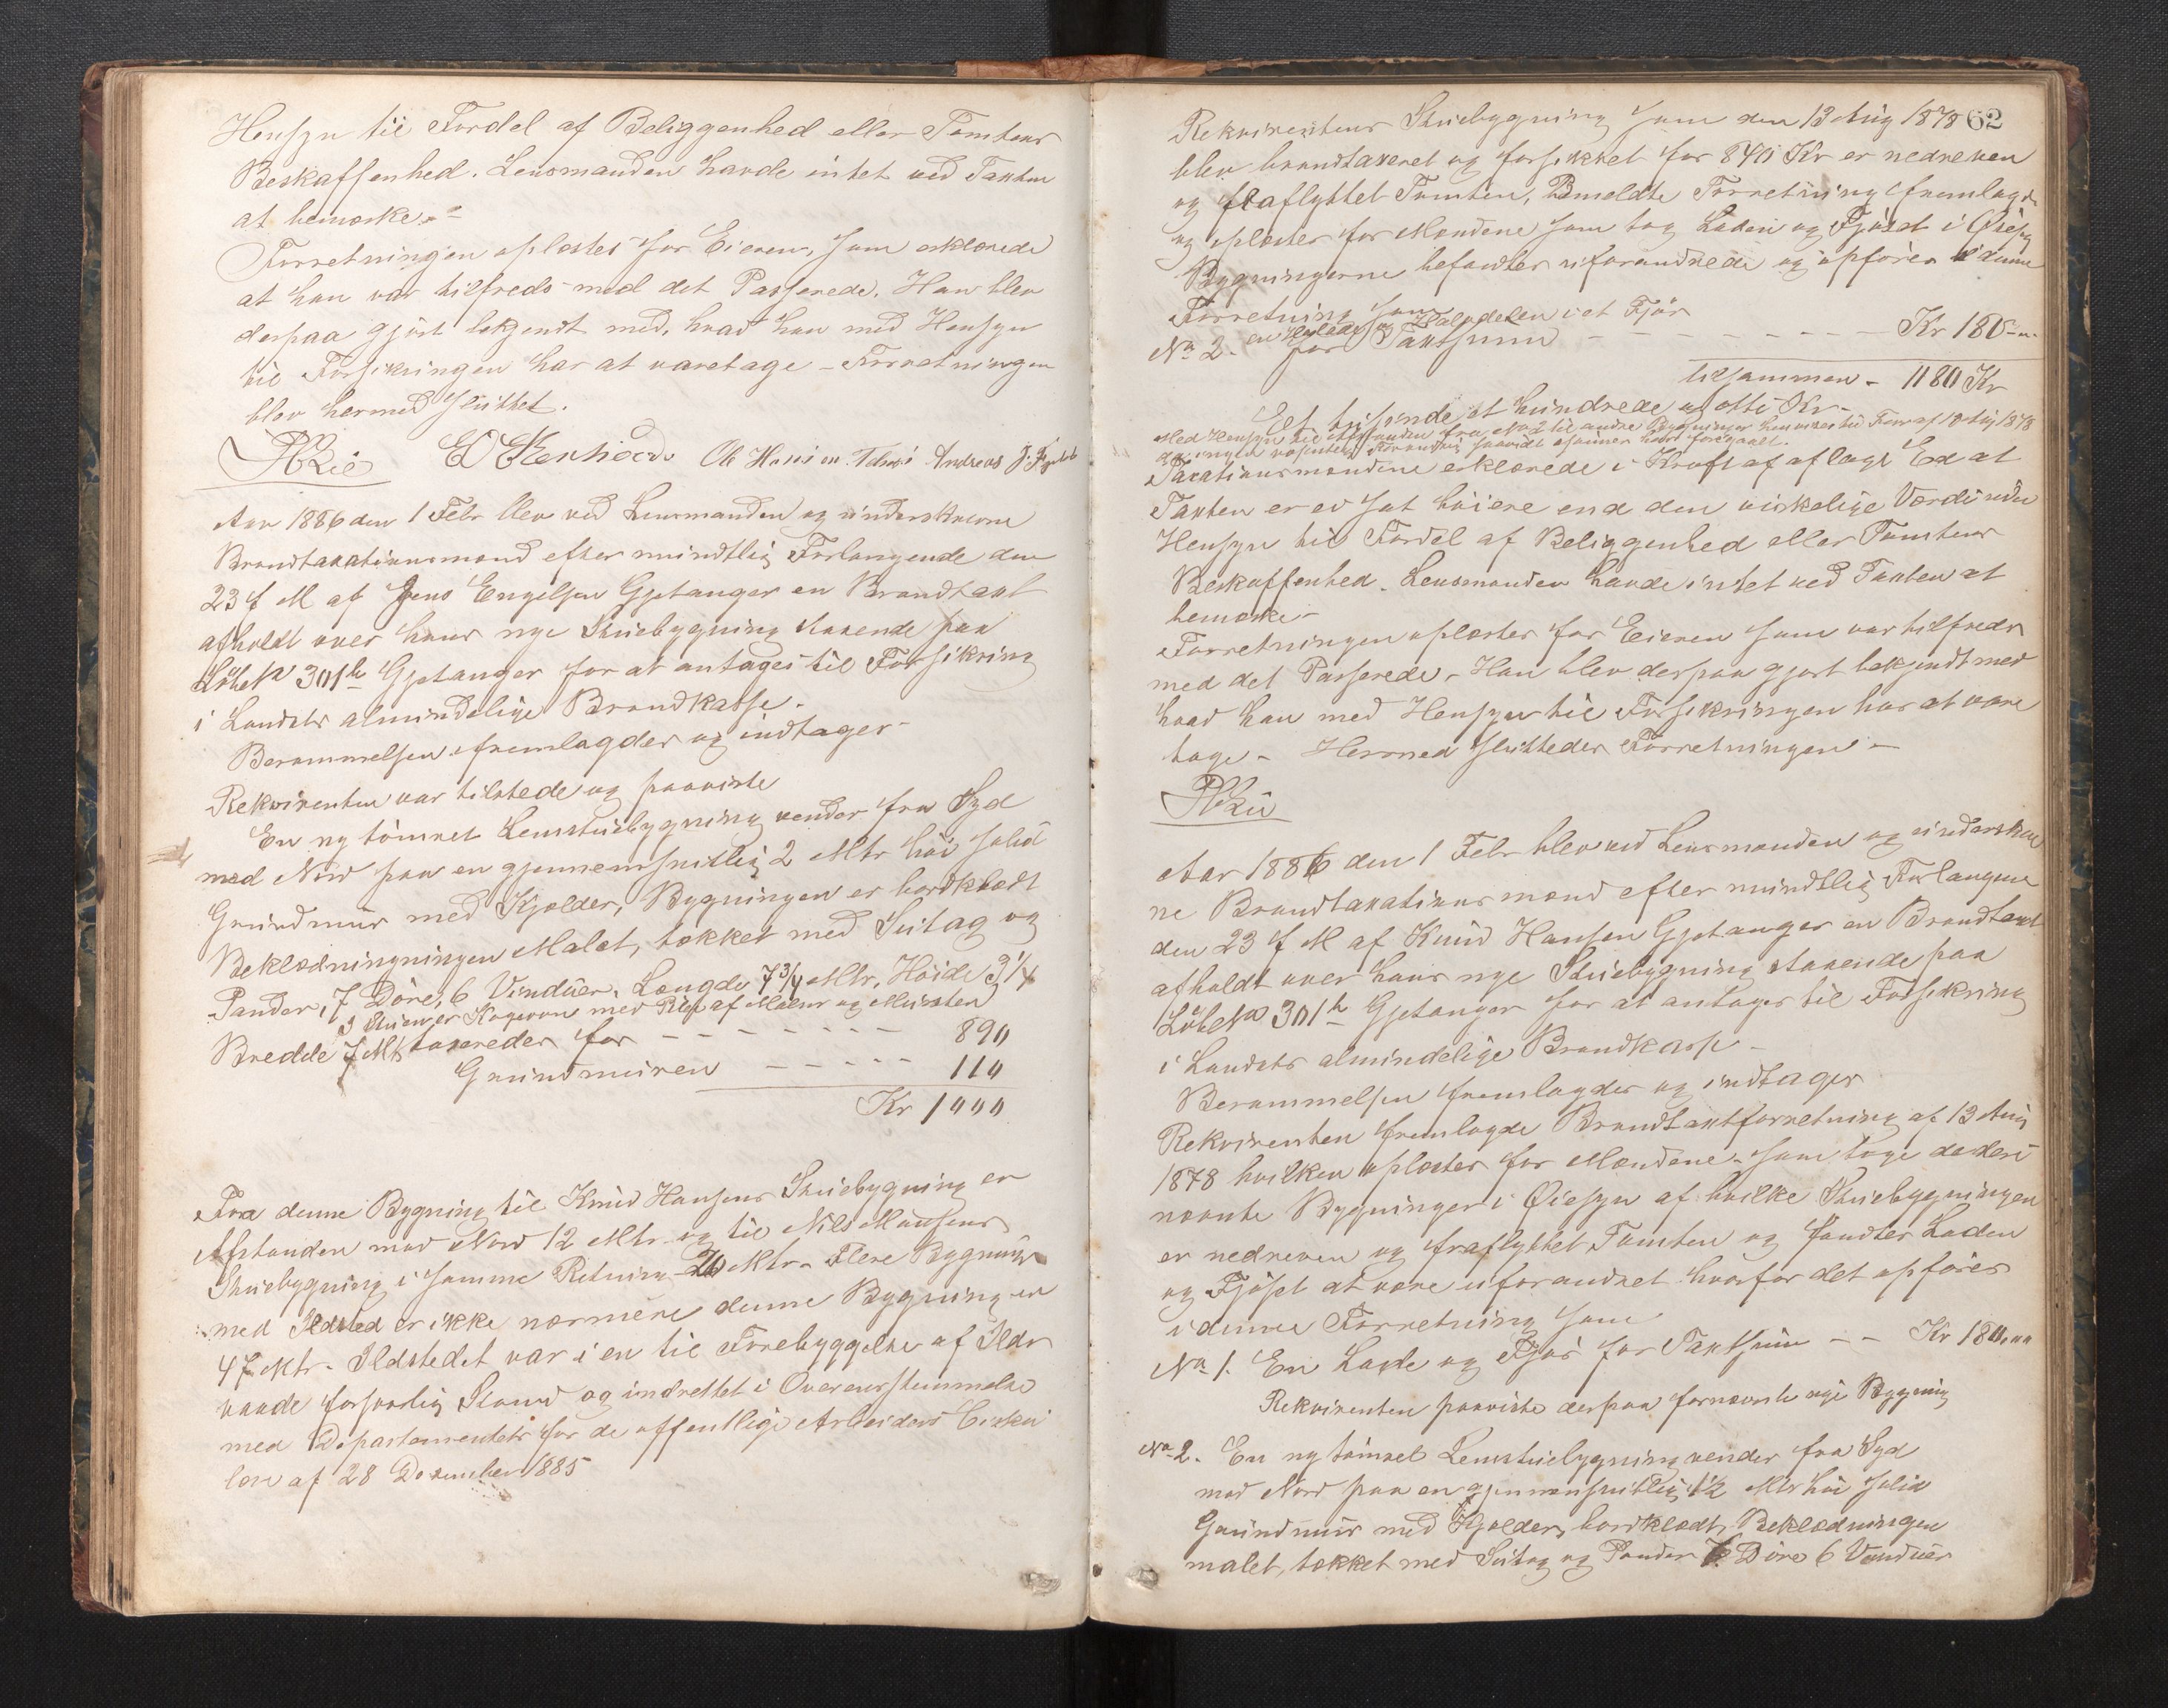 Hensyn til Fordel af Beliggenhed eller Tomtens
Beskaffenhed. Lensmanden havde intet ved Taxten
at bemærke.-
Forretningen oplæstes for Eieren, som erklærede
at han var tilfreds med det Passerede. Han blev
derpaa gjort bekjendt med, hvad han med Hensyn
til Forsikringen har at varetage - Forretningen
blev hermed sluttet.
Ole Hansen Andreas J.
Aar 1886 den 1 Febr blev ved Lensmanden og underskrevne
Brandtaxationsmænd efter mundtlig Forlangende den
23 f M af Jens Engelsen Gjetanger en Brandtaxt
afholdt over hans nye Stuebygning staaende paa
Løbe No 301 b Gjetanger for at antages til Forsikring
i Landets almindelige Brandkasse.
Berammelsen fremlagdes og indtages-
Rekvirenten var tilstede og paaviste
En ny tømret Lemstuebygning vender fra Syd
mod Nord paa en gjennemsnitlig 2 Mtr høi solid
Grundmur med Kjelder, Bygningen er bordklædt
Beklædningningen Malet, tækket med Sutag og
Pander, 7 Døre, 6 Vinduer, Længde 7 3/4 Mtr, Høide 3 1/4
I Stuen er Kogeovn med Pibe af og Mursten
Bredde 7 Mtr taxeredes for - - - - - - - 890
Grundmuren - - - - - 110
Kr 1000
Fra denne Bygning til Knud Hansens Stuebygning er
Afstanden mod Nord 12 Mtr og til Nils Monsens
Stuebygning i samme Retning 20 Mtr - Flere Bygninger
med Ildsted er ikke nærmere denne Bygning en
47 Mtr. Ildstedet var i en til Forebyggelse af Ilds
vaade forsvarlig Stand og indrettet i Overensstemmelse
med Departementets for de offentlige Arbeiders Cirku
lære af 28 Dezember 1885
62
Rekvirentens Stuebygning som den 13 Aug 1878
blev brandtaxeret og forsikret for 840 Kr er nedreven
og fraflyttet Tomten, Bemeldte Forretning fremlagdes
og oplæstes for Mændene som tog Laden og Fjøset i Øiesyn
Bygningerne befandtes uforandrede og opføres i denne
Forretning som
en Høelade og Halvdelen i et Fjøs
No 2. for Taxtsum - - - - - - - Kr 180-"
tilsammen - 1180 Kr
Et tusende et hundrede og otti Kr-
Med Hensyn til Afstanden fra No 2 til andre Bygninger henvises til Forr af 13 Aug 1878
da ingen væsentlig Forandring saavidt
Taxationsmændene erklærede i Kraft af aflagt Ed at
Taxten er ei sat høiere end den virkelige Værdi uden
Hensyn til Fordel af Beliggenhed eller Tomtens
Beskaffenhed. Lensmanden havde intet ved Taxten at
bemærke-
Forretningen oplæstes for Eieren som var tilfreds
med det Passerede - Han blev derpaa gjort bekjendt med
hvad han med Hensyn til Forsikringen har at vare
tage - Hermed sluttedes Forretningen -
Aar 1886 den 1 Febr blev ved Lensmanden og underskrev
ne Brandtaxationsmænd efter mundtlig Forlangene
den 23 f M af Knud Hansen Gjetanger en Brandtaxt
afholdt over hans nye Stuebygning staaende paa
Løbe No 301 b Gjetanger for at antages til Forsikring
i Landets almindelige Brandkasse -
Berammelsen fremlagdes og indtages
Rekvirenten fremlagde Brandtaxtforretning af 13 Aug
1878 hvilken oplæstes for Mændene - som toge de deri
nævnte Bygninger i Øiesyn af hvilke Stuebygningen
er nedreven og fraflyttet Tomten og fandtes Laden
og Fjøset at være uforandret hvorfor det opføres
i denne Forretning som
No 1. En Lade og Fjøs for Taxtsum - - Kr 180,00
Rekvirenten paaviste derpaa fornævnte nye Bygning
No 2. En ny tømret Lemstuebygning vender fra Syd
mod Nord paa en gjennemsnitlig 1 1/2 Mtr høi solid
Grundmur med Kjelder, bordklædt, Beklædningen
malet, tækket med Sutag og Pander 7 Døre 6 Vinduer